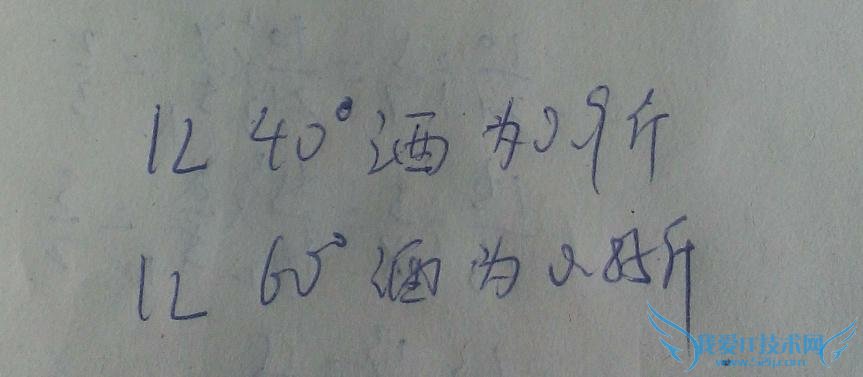 1L 40°酒为0.9斤
1L 60°酒为0.85斤
我爱IT技术网
www.52ij.com